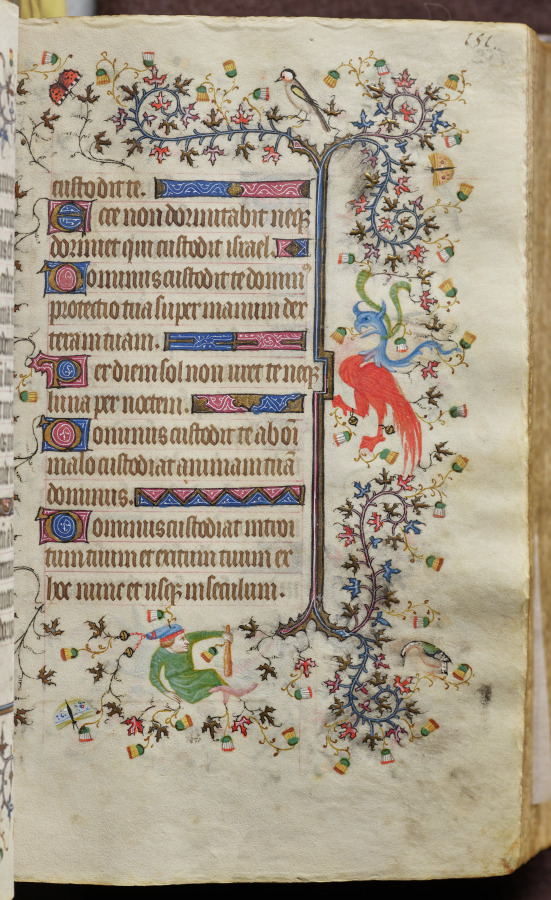 custodit te.
Ecce non dormitabit neqꝫ
dormiet qui custodit israel.
Dominus custodit te domin⁹
protectio tua super manum dex
teram tuam.
Per diem sol non uret te neqꝫ
luna per noctem.
Dominus custodit te ab oi̅
malo custodiat animam tuā
dominus.
Dominus custodiat introi
tum tuum et exitum tuum ex
hoc nunc et usqꝫ in seculum.